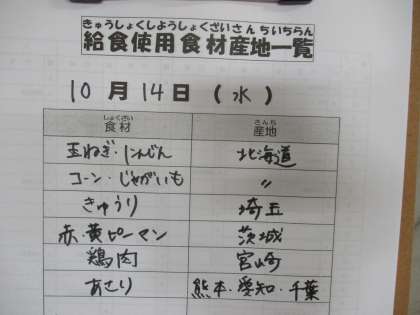 きゅうしょくしようしょくざいさんちいちらん
給食使用食材産地一覧
10月14日(水)
しょくざい さんち
食材 産地
玉ねぎ・にんじん 北海道
コーン・じゃがいも 〃
きゅうり 埼玉
赤・黄ピーマン 茨城
鶏肉 宮崎
あさり 熊本・愛知・千葉